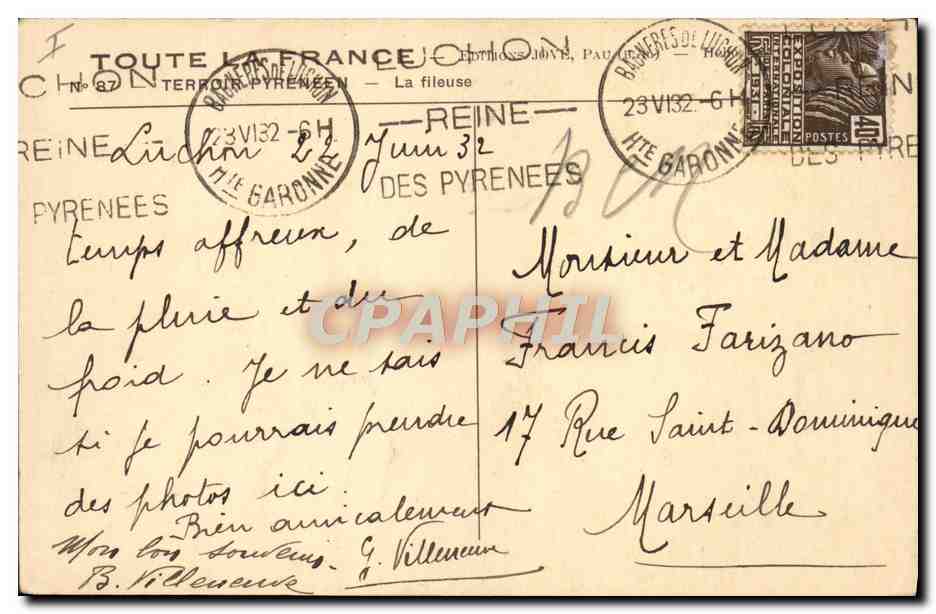 I
TOUTE LA FRANCE
ÉDITIONS JOVE, PAU
N° 87 TERROIR PYRENEEN — La fileuse
LUCHON
REINE
DES PYRENEES
CHON
REINE
PYRENEES
BAGNERES DE LUCHON
23 VI 32 -6H
HTE GARONNE
BAGNERES DE LUCHON
23 VI 32 -6H
HTE GARONNE
DES PYRE
EXPOSITION
COLONIALE
INTERNATIONALE
PARIS
POSTES
40c
Luchon 22 Juin 32
temps affreux, de
la pluie et du
froid. Je ne sais
si je pourrais prendre
des photos ici.
Bien amicalement
G. Villeneuve
Mon bon souvenir
B. Villeneuve
Monsieur et Madame
Francis Farizano
17 Rue Saint-Dominique
Marseille
CPAPHIL